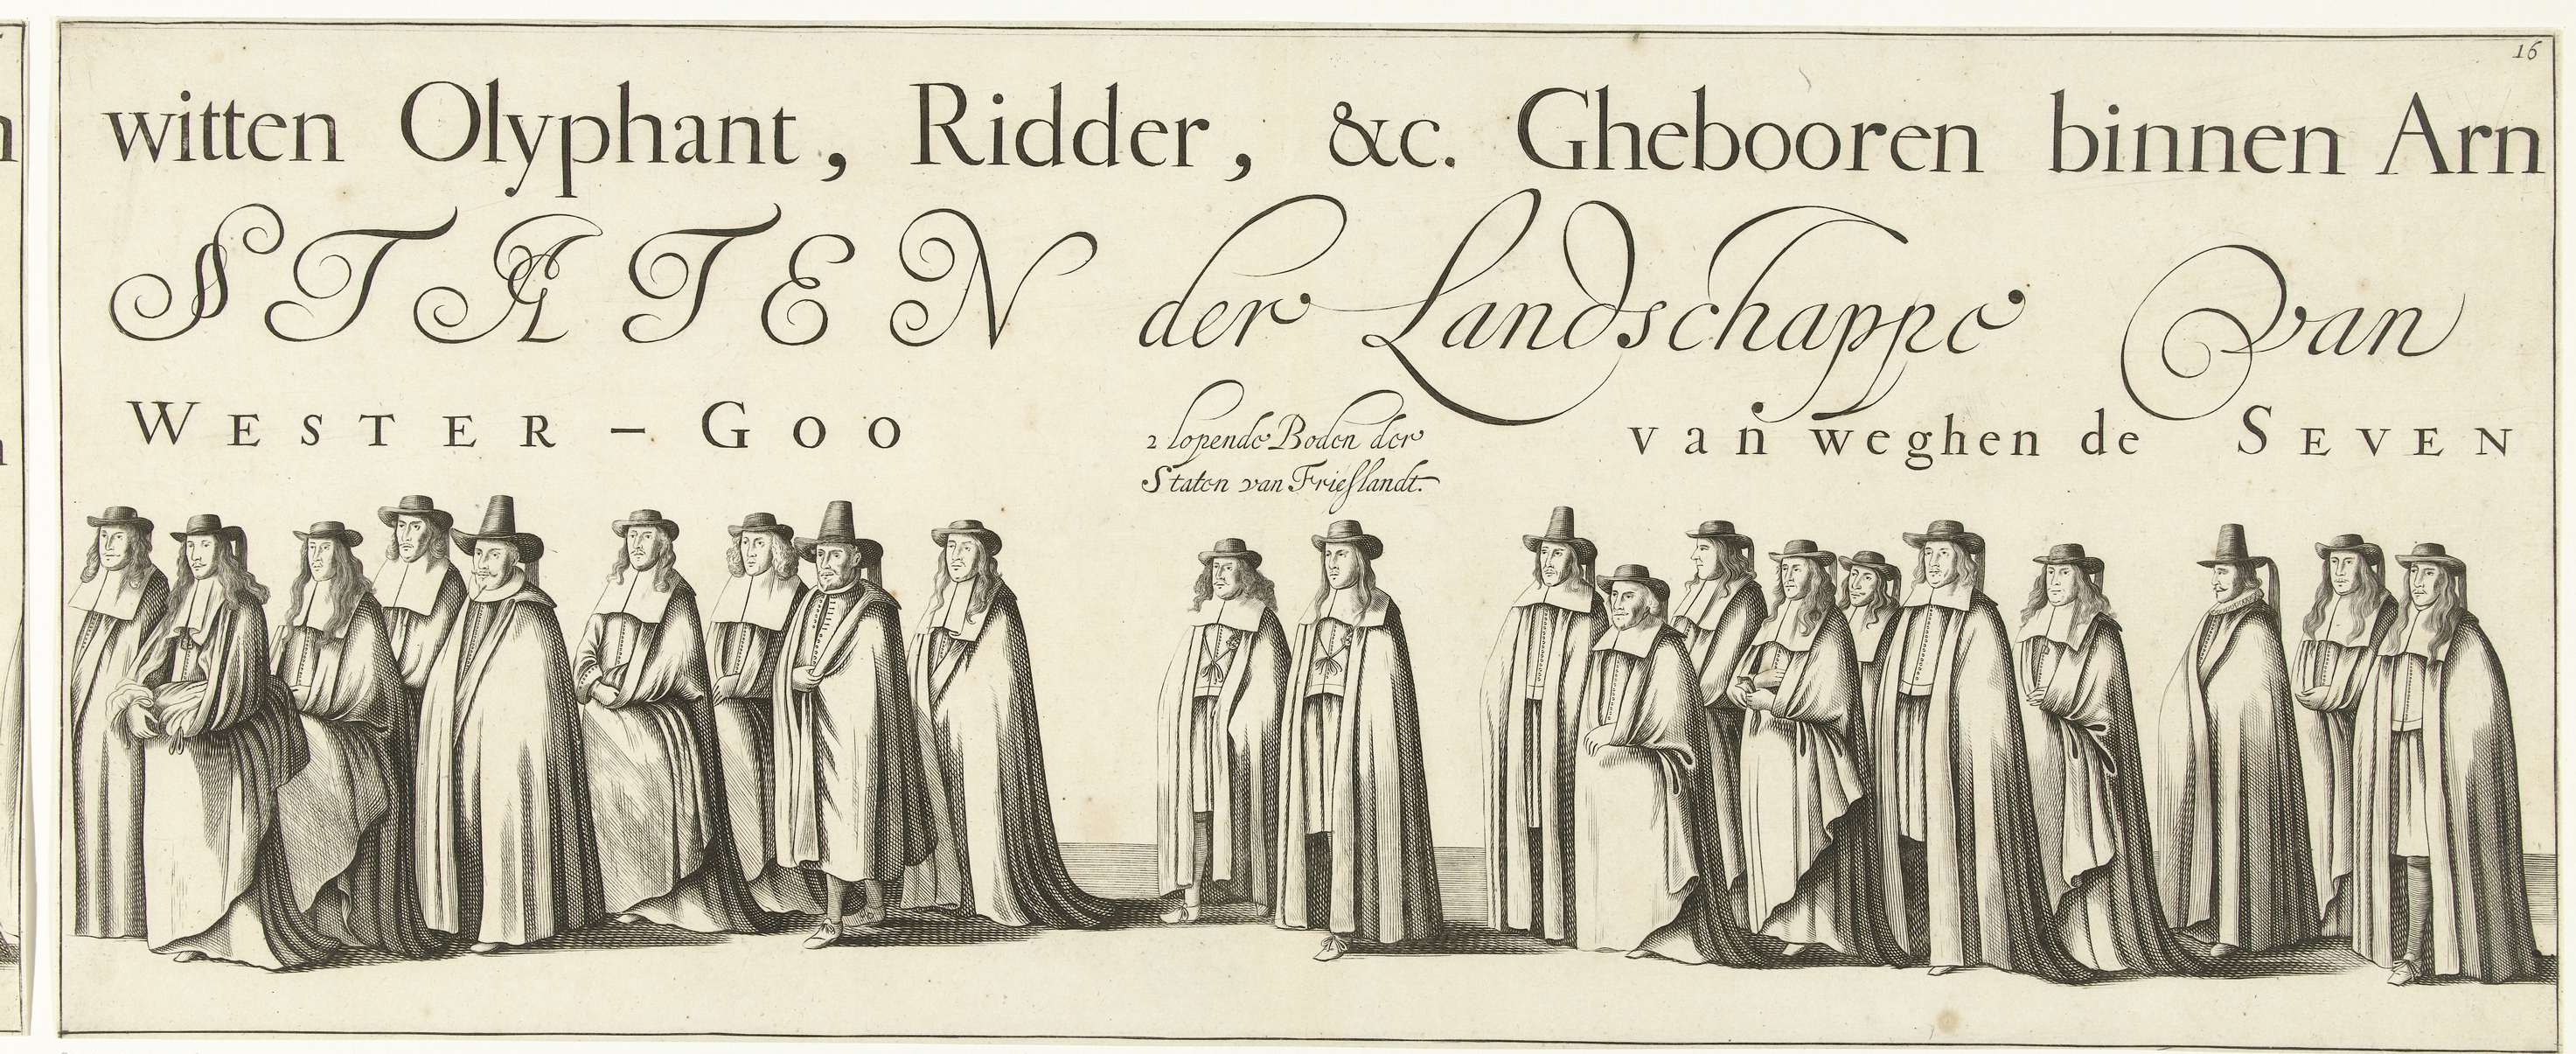 16
witten Olyphant, Ridder, &c. Ghebooren binnen Arn
STATEN der Landschappe van
WESTER-GOO
2 lopende Boden der
Staten van Frieslandt.
van weghen de SEVEN